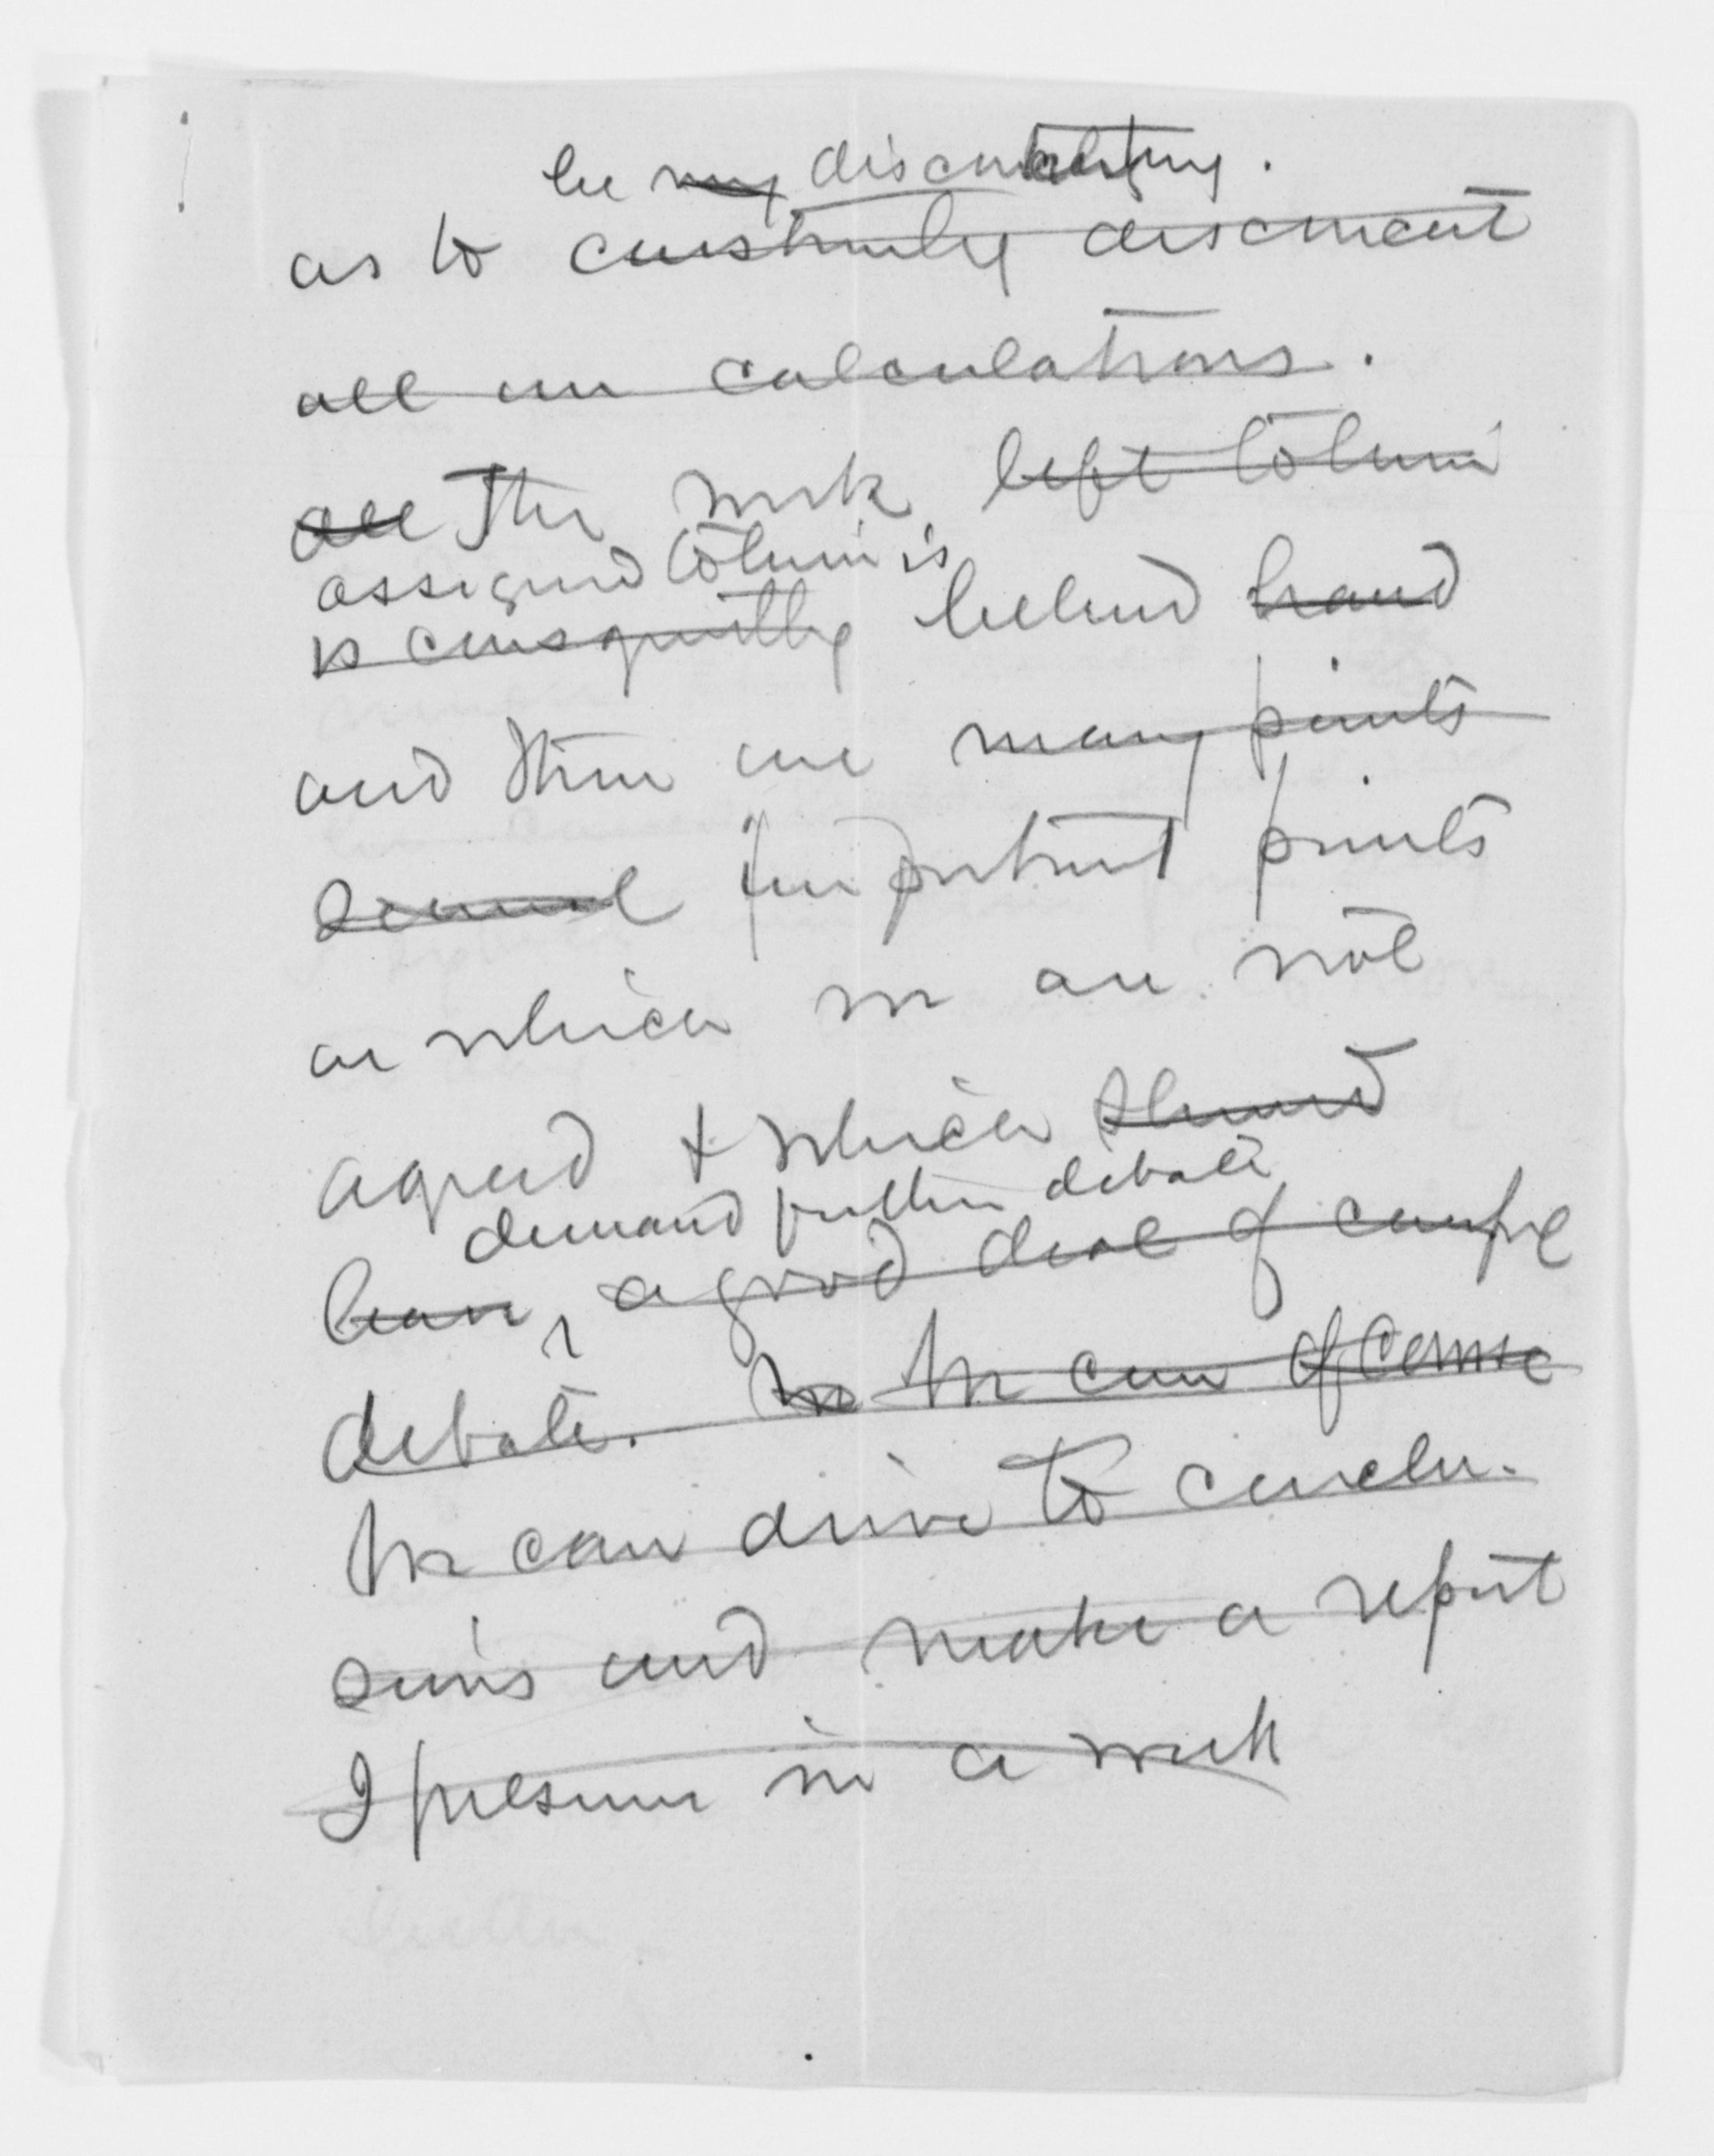 be very disconcerting.
as to constantly disconcert
all our calculations.
all The work left to him
assigned to him is
is consequently behind hand
and there are many points
several important points
on which we are not
agreed & which should
demand further debate
bear, a good deal of careful
debate. We We can of course
We can drive to conclu-
sions and make a report
I presume in a week